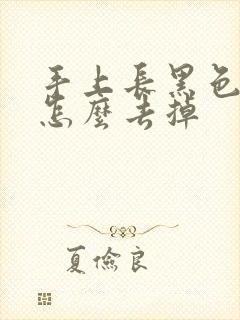 手上長黑色
怎麼去掉
夏儉良